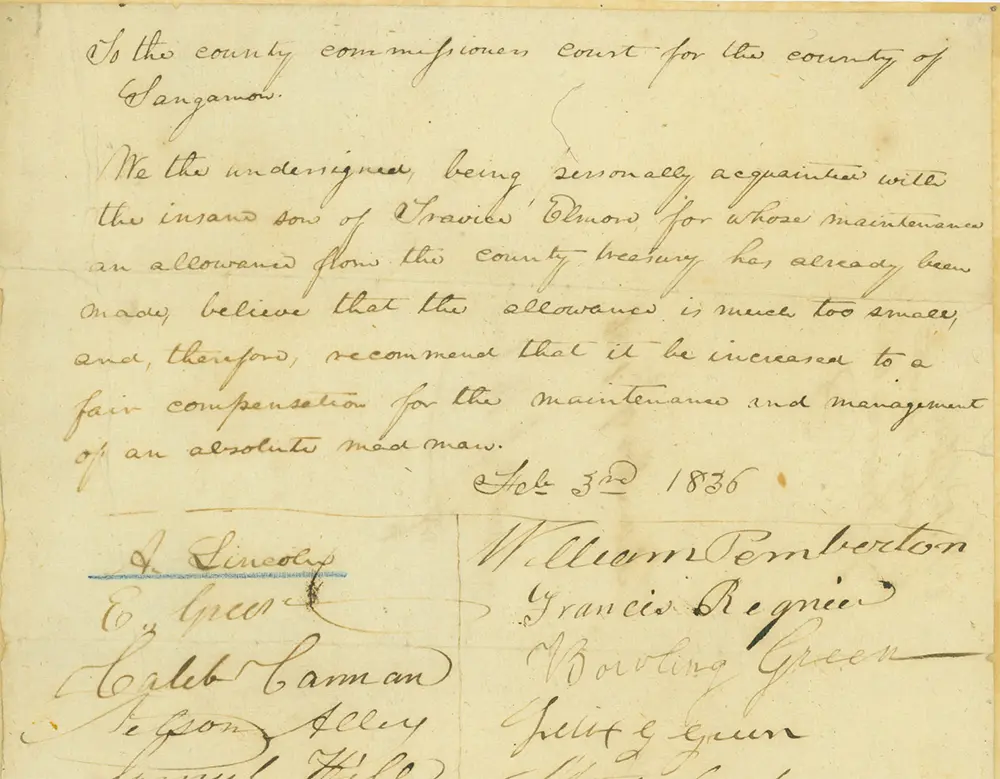 To the county commissioners court for the county of
Sangamon.
We the undersigned, being personally acquainted with
the insane son of Travice Elmore, for whose maintenance
an allowance from the county treasury has already been
made, believe that the allowance is much too small,
and, therefore, recommend that it be increased to a
fair compensation for the maintenance and management
of an absolute mad man.
Feb 3rd 1836
A. Lincoln
William Pemberton
E. Greer
Francis Regnier
Bowling Green
Caleb Carman
Nelson Alley
G Green
Hill